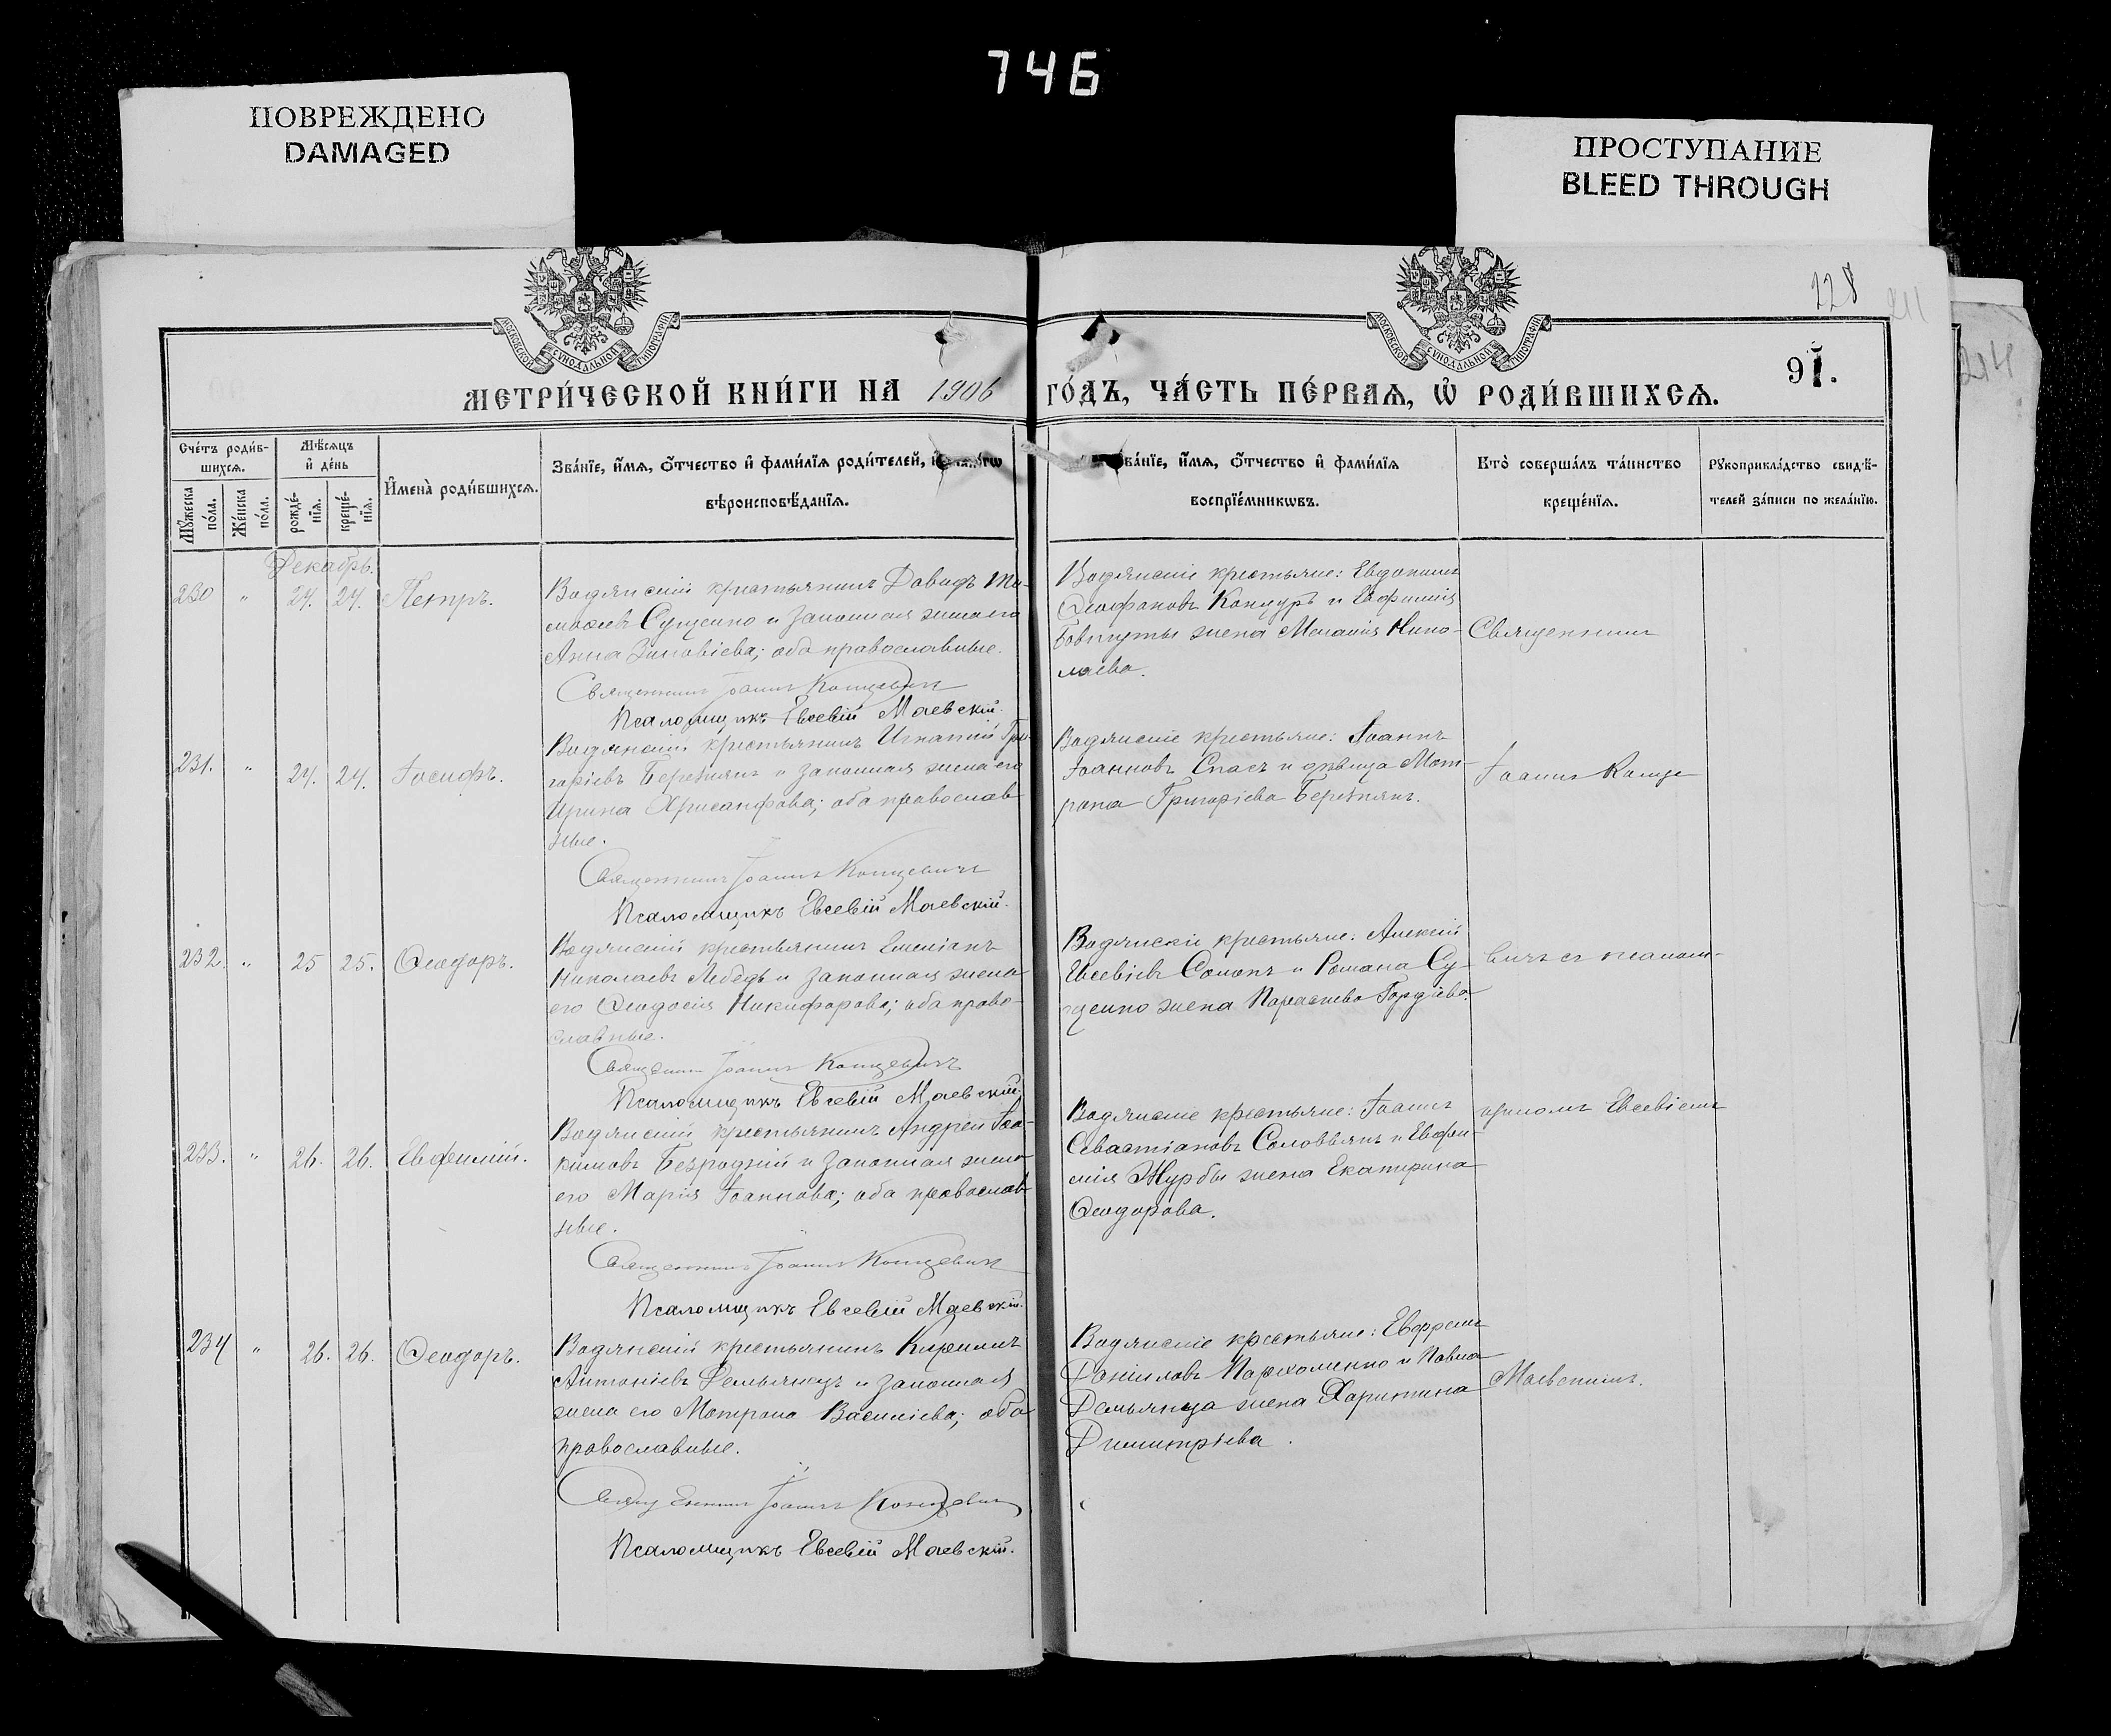 746
ПОВРЕЖДЕНО
DAMAGED
ПРОСТУПАНИЕ
BLEED THROUGH
228
211
214
МОСКОВСКОЙ СѴНОДАЛЬНОЙ ТИПОГРАФІИ
МОСКОВСКОЙ СѴНОДАЛЬНОЙ ТИПОГРАФІИ
91.
МЕТРИ́ЧЕСКОЙ КНИ́ГИ НА 1906 ГО́ДЪ, ЧА́СТЬ ПЕ́РВАѦ, Ѡ҆ РОДИ́ВШИХСѦ.
Сче́тъ роди́в-
шихсѧ.
Мѣ́сѧцъ
и҆ де́нь
Мꙋ́жеска по́ла.
Же́нска по́ла.
рожде́-
нїѧ.
креще́-
нїѧ.
И҆мена̀ роди́вшихсѧ.
Зва́нїе, и҆́мѧ, ѻ҆́тчество и҆ фамѝлїѧ роди́телей,
вѣроисповѣ́данїѧ.
Зва́нїе, и҆́мѧ, ѻ҆́тчество и҆ фами́лїѧ
воспрїе́мникѡвъ.
Кто̀ соверша́лъ та́инство
креще́нїѧ.
Рꙋкоприкла́дство свидѣ́-
телей за́писи по жела́нїю.
Декабрь.
230 " 24. 24. Петръ.
Водянскій крестьянинъ Давидъ Ти-
моѳеевъ Сущенко и законная жена его
Анна Зиновіева; оба православные.
Священникъ Іоаннъ Концевичъ
Псаломщикъ Евсевій Маевскій.
Водянскіе крестьяне: Евдокимъ
Ѳеофановъ Кондуръ и
жена Меланія Нико-
лаева.
Священникъ
231. " 24. 24. Іосифъ.
Водянскій крестьянинъ Игнатій Гри-
горіевъ Березнякъ и законная жена его
Ирина Хрисанфова; оба православ-
ные.
Священникъ Іоаннъ Концевичъ
Псаломщикъ Евсевій Маевскій.
Водянскіе крестьяне: Іоаннъ
Іоанновъ Спасъ и дѣвица Мот-
рона Григоріева Березнякъ.
Іоаннъ Конце-
232. " 25 25. Ѳеодоръ.
Водянскій крестьянинъ Емеліанъ
Николаевъ Лебедь и законная жена
его Ѳеодосія Никифорова; оба право-
славные.
Священникъ Іоаннъ Концевичъ
Псаломщикъ Евсевій Маевскій.
Водянскіе крестьяне: Алексій
Евсевіевъ Сомокъ и Романа Су-
щенко жена Параскева Гордіева.
вичъ съ псалом-
233. " 26. 26. Евфимій.
Водянскій крестьянинъ Андрей Іоа-
кимовъ Безродній и законная жена
его Марія Іоаннова; оба православ-
ные.
Священникъ Іоаннъ Концевичъ
Псаломщикъ Евсевій Маевскій.
Водянскіе крестьяне: Іоаннъ
Севастіановъ Соловьянъ и Евфи-
мія Журбы жена Екатерина
Ѳеодорова.
щикомъ Евсевіемъ
234 " 26. 26. Ѳеодоръ.
Водянскій крестьянинъ Кириллъ
Антоніевъ Демьянецъ и законная
жена его Мотрона Василіева; оба
православные.
Священникъ Іоаннъ Концевичъ
Псаломщикъ Евсевій Маевскій.
Водянскіе крестьяне: Ефремъ
Даніиловъ Пархоменко и Павла
Демьянца жена Харитина
Димитріева.
Маевскимъ.